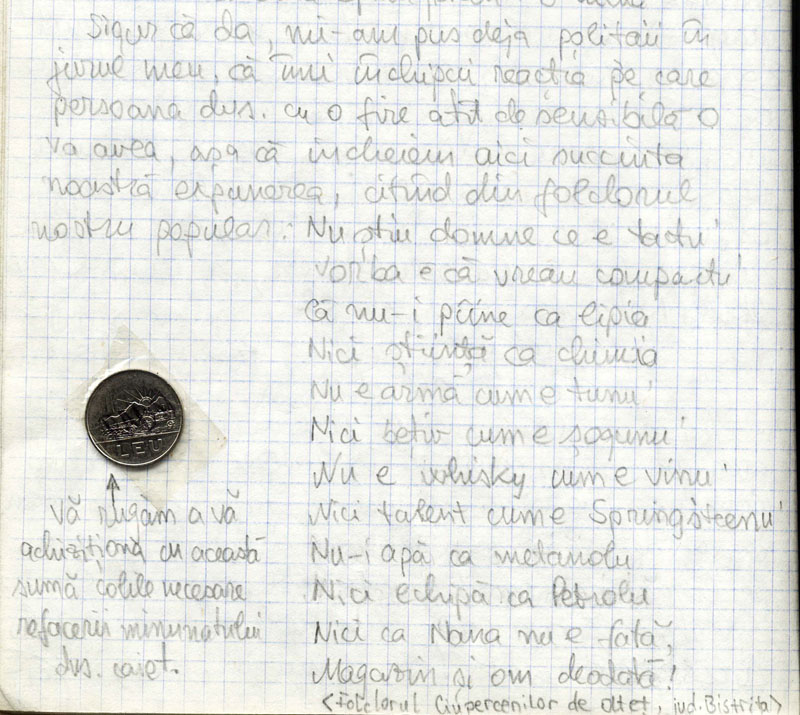 Sigur că da, mi-am pus deja politaii în
jurul meu, că îmi închipui reactia pe care
persoana dvs. cu o fire atît de sensibilă o
va avea, asa că incheiem aici succinta
noastră expunerea, citînd din folclorul
nostru popular: Nu știu domne ce e tactu'
Vorba e că vreau compactu'
Că nu-i pîine ca lipia
Nici știință ca chimia
Nu e armă cum e tunu'
Nici bețiv cum e șogunu'
Nu e whisky cum e vinu'
Nici talent cum e Springsteenu'
Nu-i apă ca metanolu
Nici echipă ca Petrolu
Nici ca Nana nu e fată,
Magazin si om deodată!
<Folclorul Ciupercenilor de Olteț, jud. Bistrita>
LEU
Vă rugăm a vă
achiziționa cu această
sumă colile necesare
refacerii minunatului
dvs. caiet.